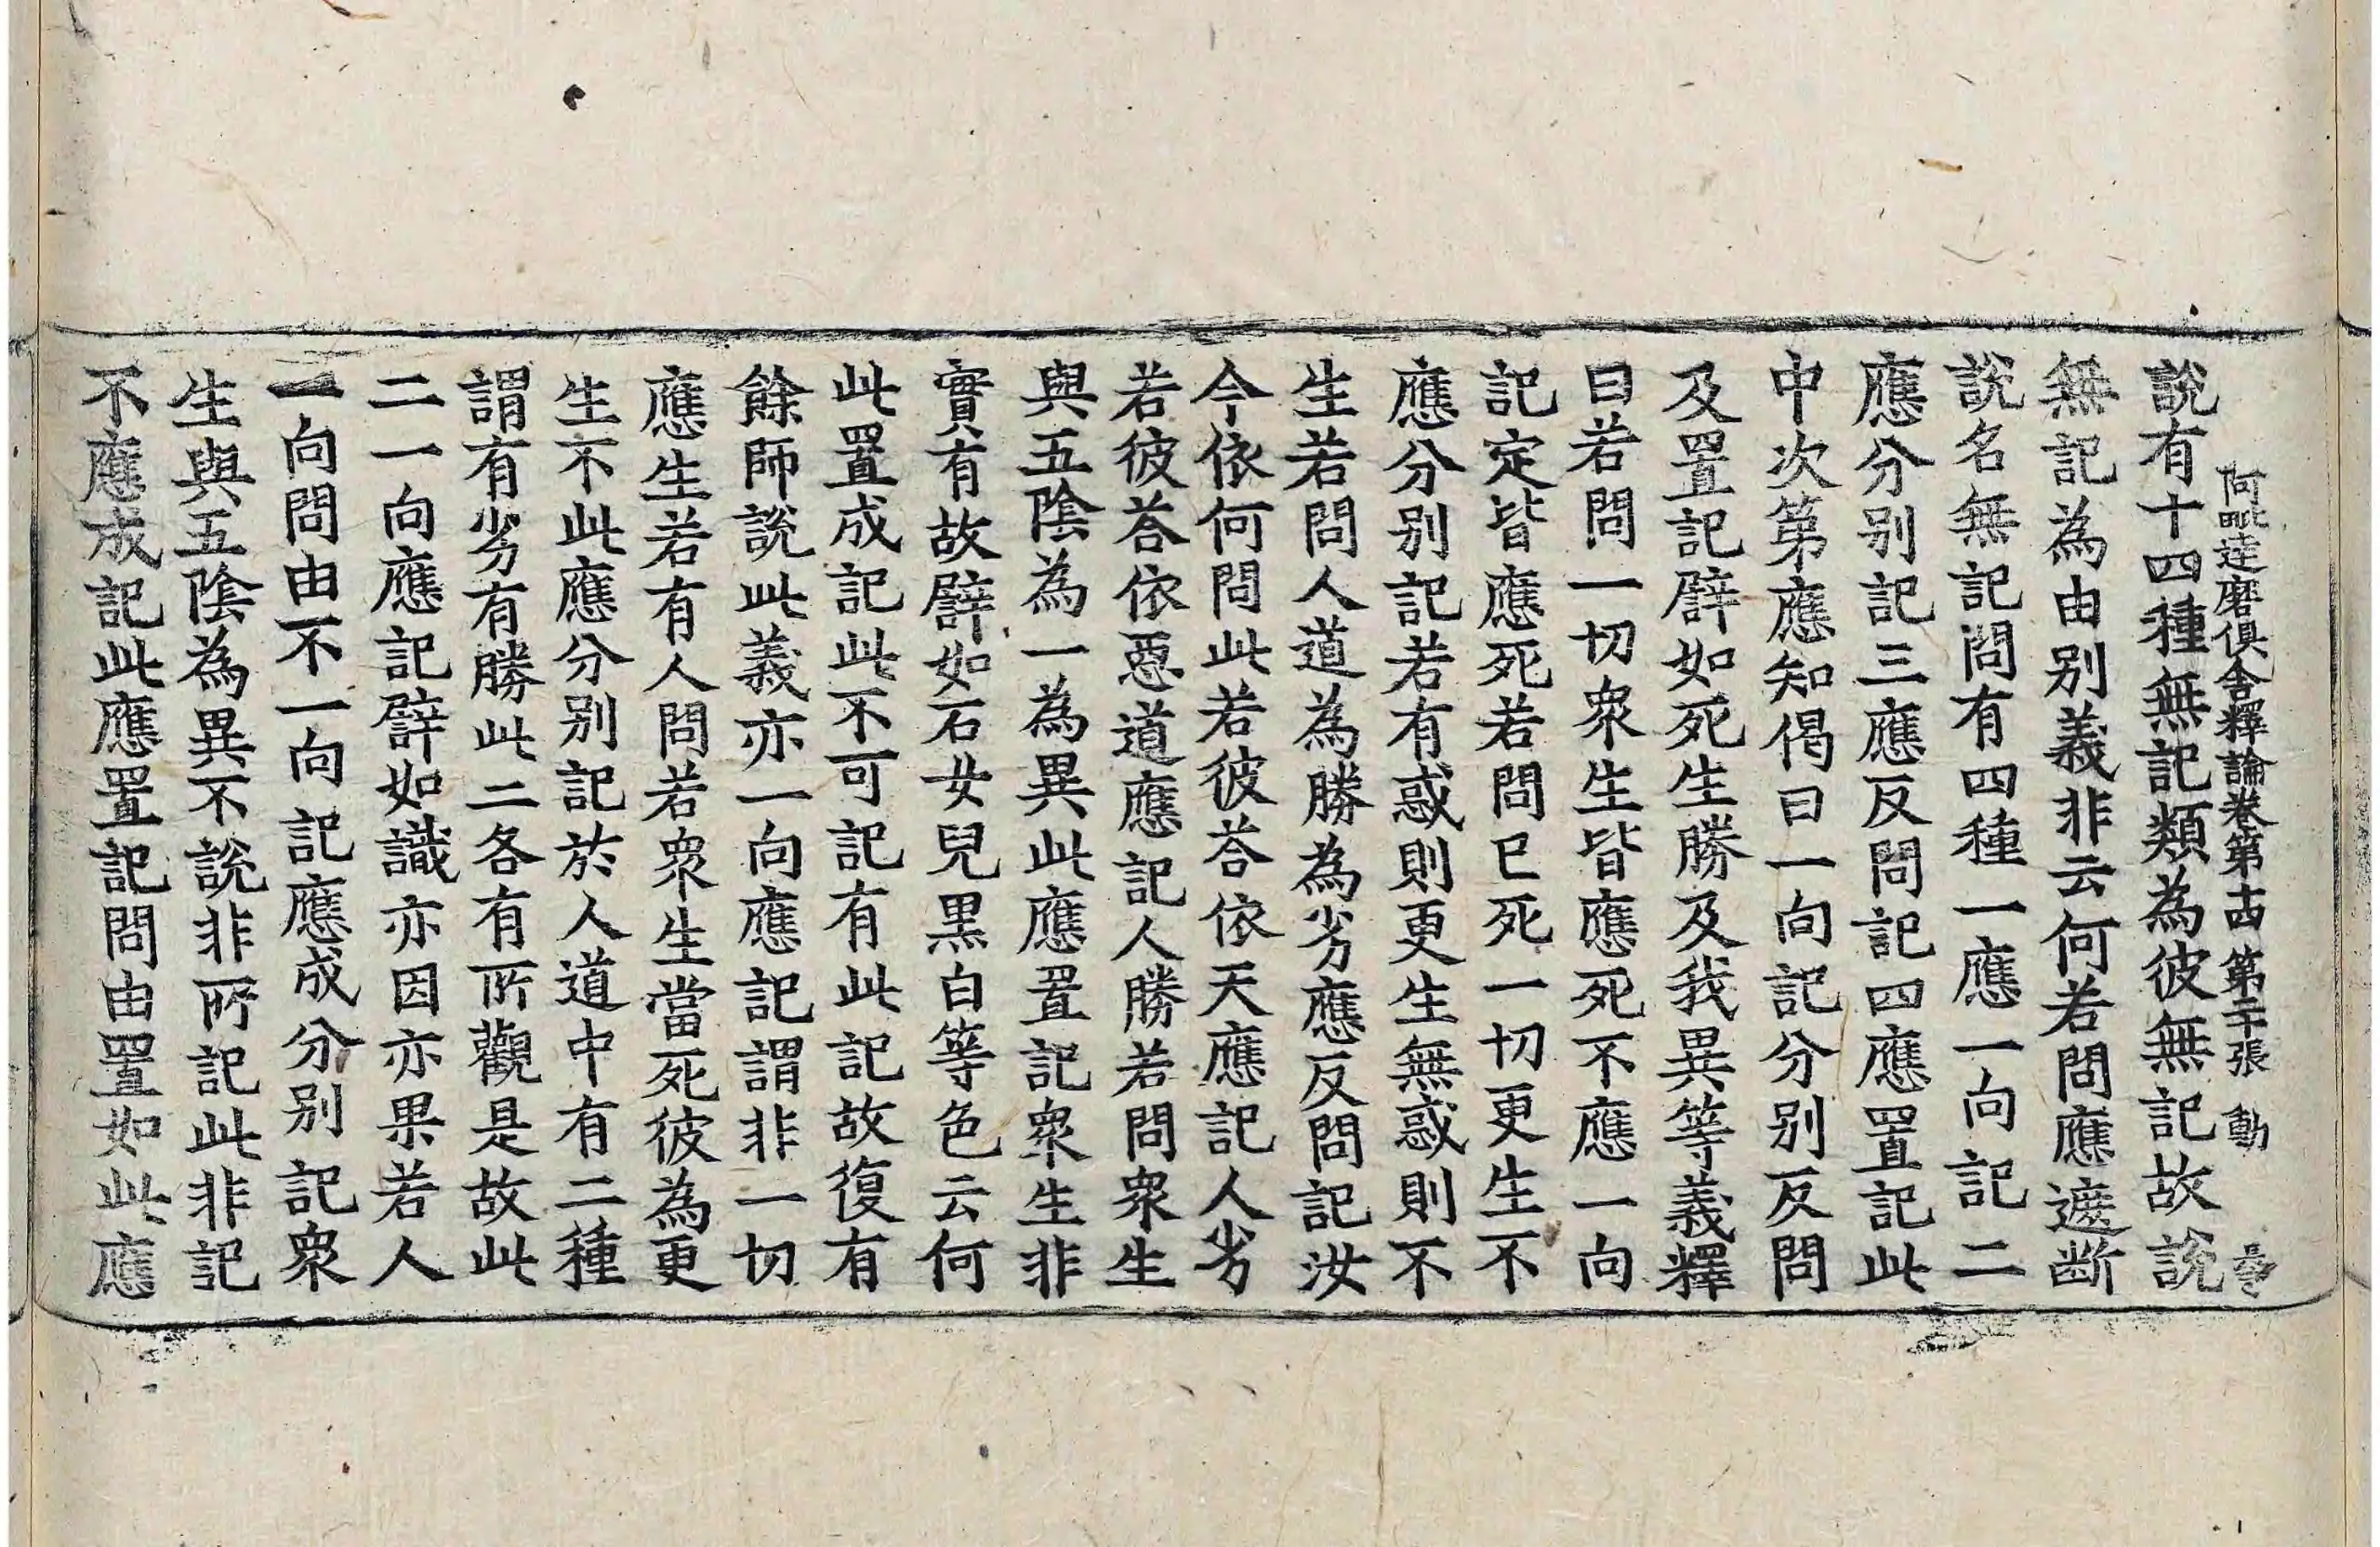 阿毗達磨俱舍釋論卷第十四 第二十張 動
說有十四種無記類為彼無記故說
無記為由別義非云何若問應遮断
說名無記問有四種一應一向記二
應分別記三應反問記四應置記此
中次第應知偈曰一向記分別反問
及置記譬如死生勝及我異等義釋
曰若問一切衆生皆應死不應一向
記定皆應死若問已死一切更生不
應分別記若有惑則更生無惑則不
生若問人道為勝為劣應反問記汝
今依何問此若彼荅依天應記人劣
若彼荅依惡道應記人勝若問衆生
與五陰為一為異此應置記衆生非
實有故譬如石女兒黑白等色云何
此置成記此不可記有此記故復有
餘師說此義亦一向應記謂非一切
應生若有人問若衆生當死彼為更
生不此應分別記於人道中有二種
謂有劣有勝此二各有所觀是故此
二一向應記譬如識亦因亦果若人
一向問由不一向記應成分別記衆
生與五陰為異不說非所記此非記
不應成記此應置記問由置如此應